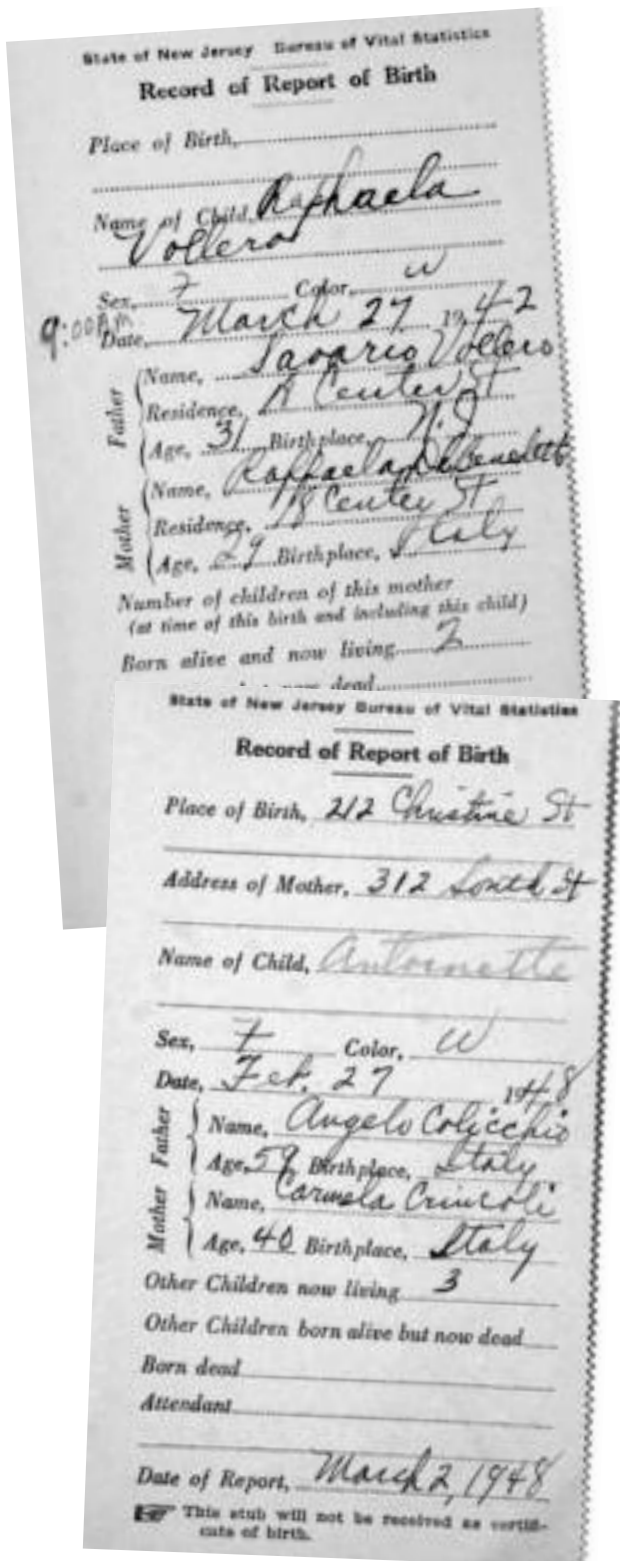 State of New Jersey Bureau of Vital Statistics
Record of Report of Birth
Place of Birth,
Name of Child, Raphaela
Vollero
Sex, F Color, W
9:00 AM
Date, March 27 1942
Father
Name, Savario Vollero
Residence, Center St
Age, 31 Birthplace, N.J
Mother
Name, Raffaela DeBenedetto
Residence, 18 Center St
Age, 29 Birthplace, Italy
Number of children of this mother
(at time of this birth and including this child)
Born alive and now living 2
now dead
State of New Jersey Bureau of Vital Statistics
Record of Report of Birth
Place of Birth, 212 Christine St
Address of Mother, 312 South St
Name of Child, Antoinette
Sex, F Color, W
Date, Feb. 27 1948
Father
Name, Angelo Colicchio
Age, 59 Birthplace, Italy
Mother
Name, Carmela
Age, 40 Birthplace, Italy
Other Children now living 3
Other Children born alive but now dead
Born dead
Attendant
Date of Report, March 2, 1948
This stub will not be received as certifi-
cate of birth.